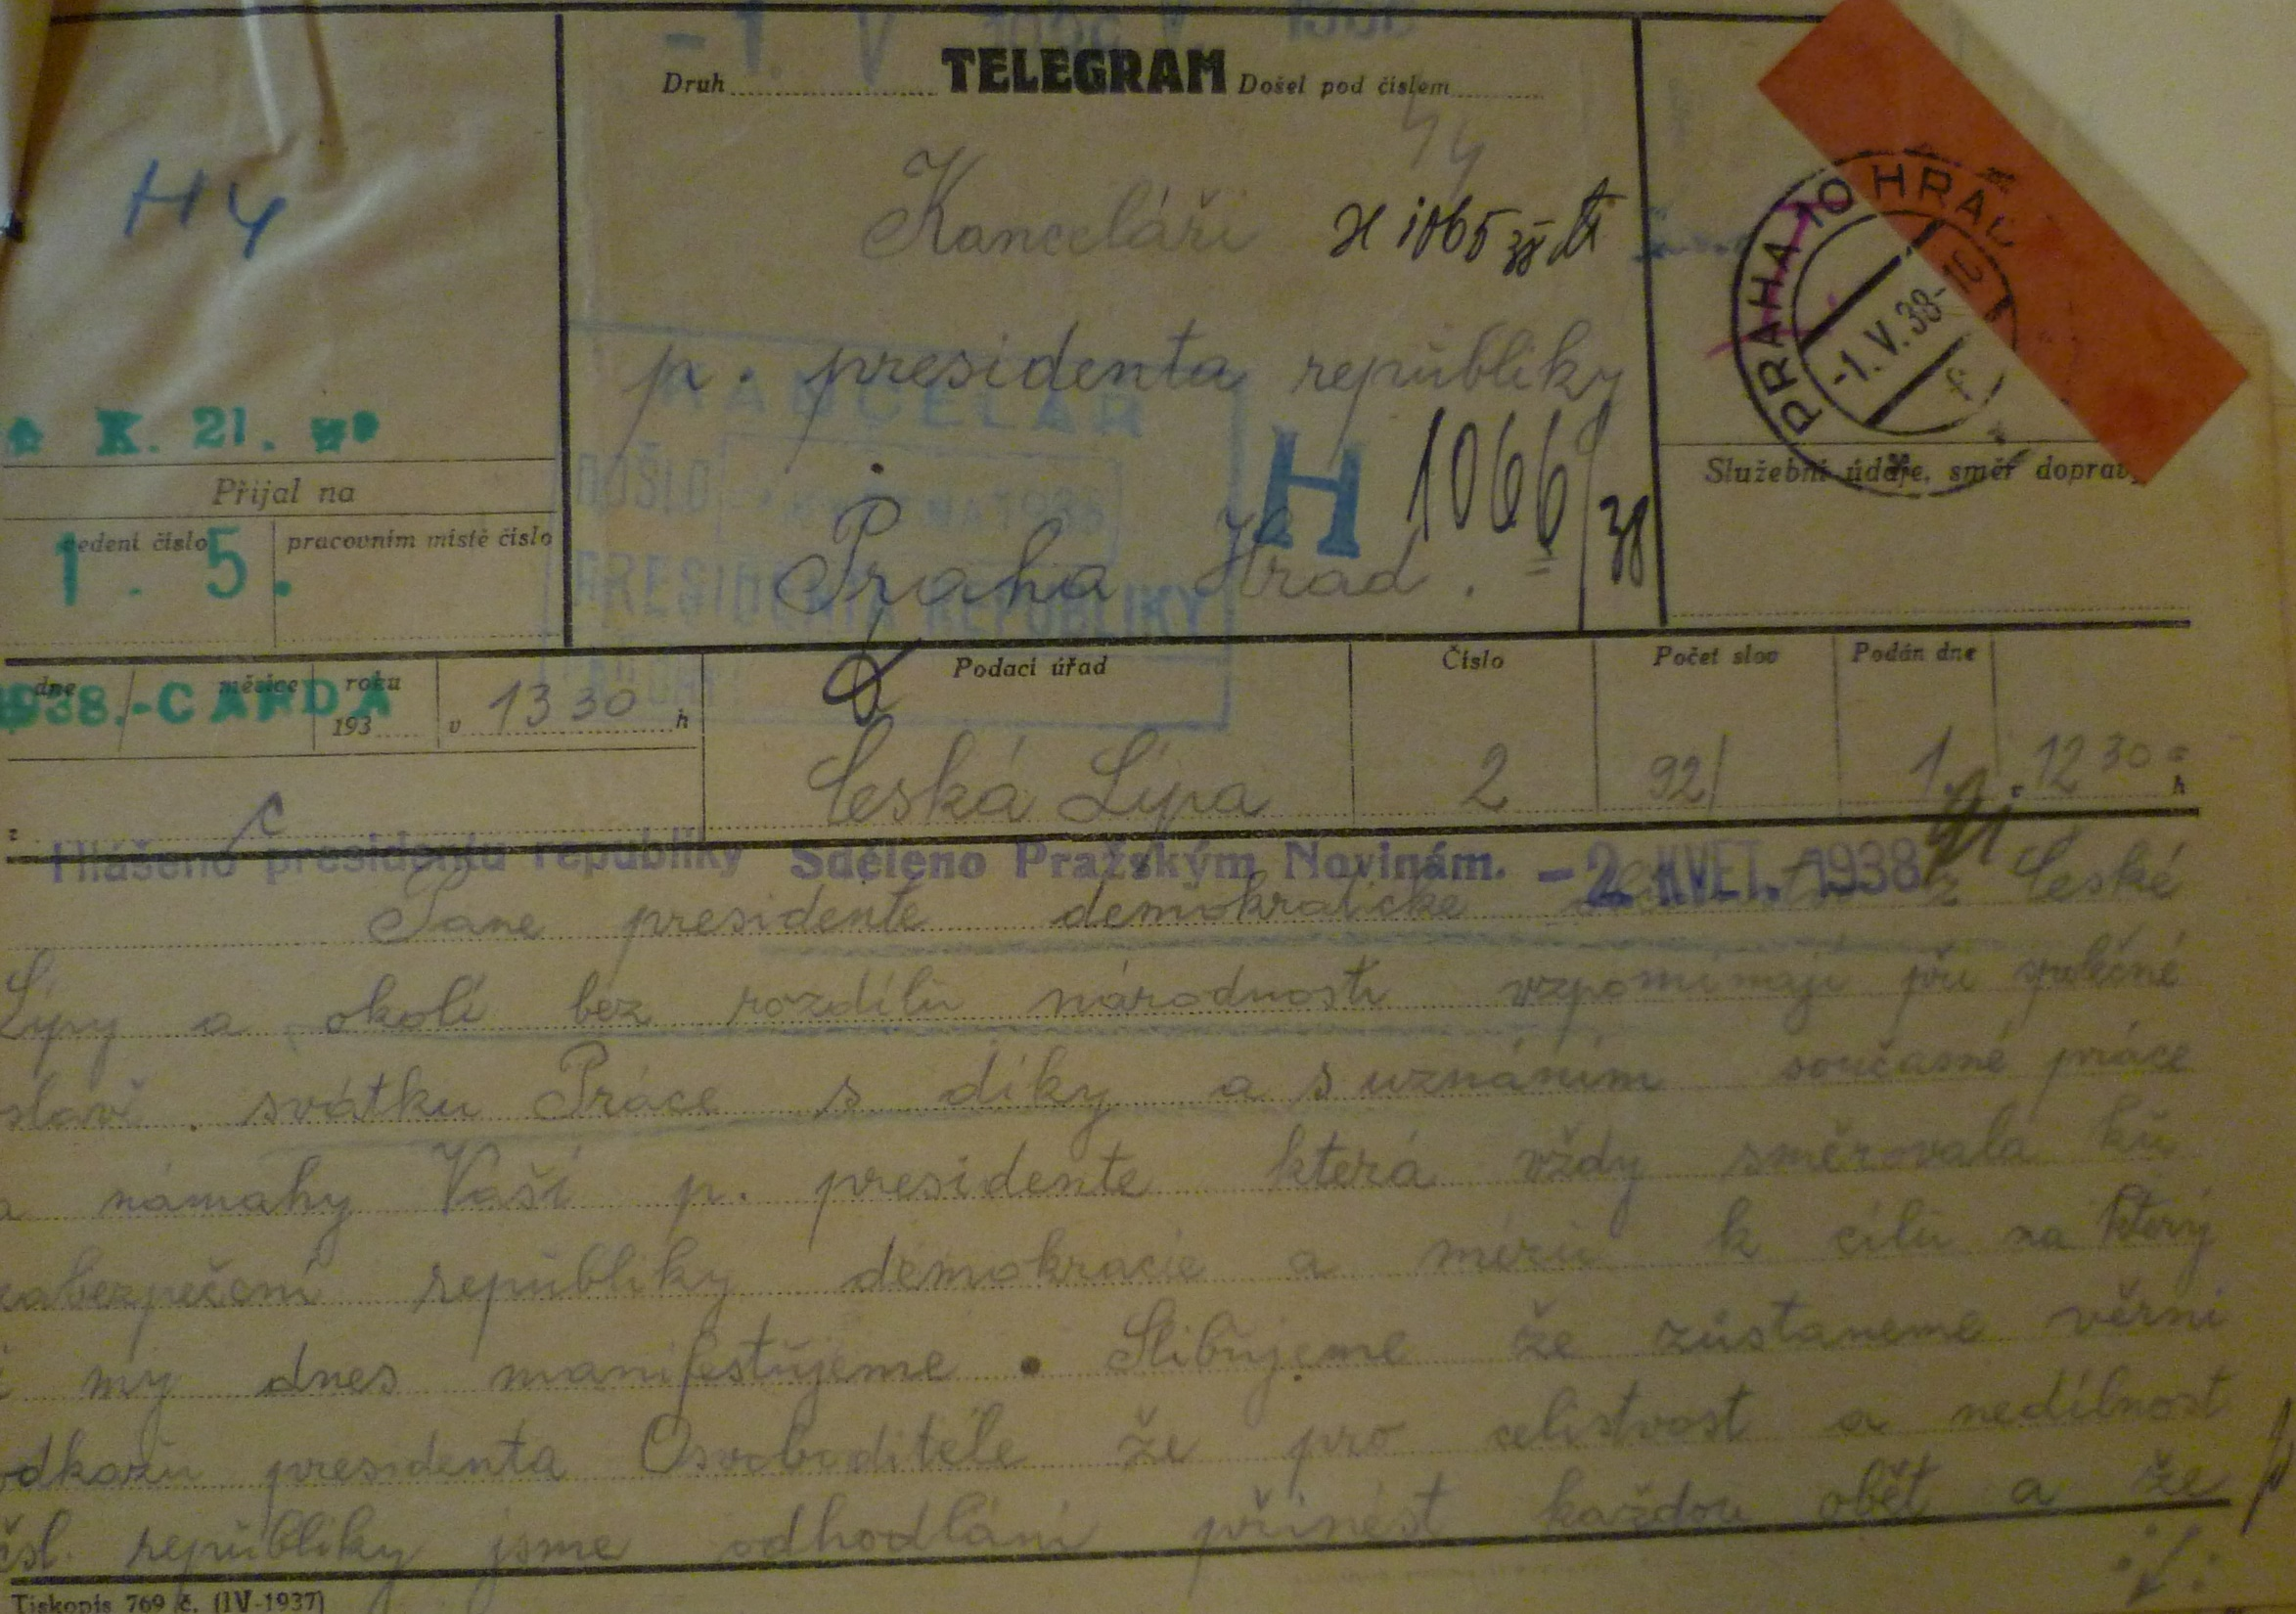 TELEGRAM
Druh
Došel pod číslem
44
H 4
Kanceláři H 1065/38
p. presidenta republiky
Praha Hrad.
H 1066/38
KANCELÁŘ
DOŠLO
PRESIDENTA REPUBLIKY
PRAHA 10 HRAD
-1.V.38-10
Služební údaje, směr dopravy
K. 21.
Přijal na
vedení číslo
pracovním místě číslo
1. 5.
dne
měsíce
roku
193
1938.-CAFDA
v 13 30 h
Podací úřad
Číslo
Počet slov
Podán dne
Česká Lípa
2
92/
1. 12 30 h
Hlášeno presidentu republiky
Sděleno Pražským Novinám.
- 2. KVĚT. 1938
Pane presidente demokratické z České
Lípy a okolí bez rozdílu národnosti vzpomínají při společné
slav. svátku Práce s díky a s uznáním současné práce
a námahy Vaší p. presidente která vždy směrovala ku
zabezpečení republiky demokracie a míru k cíli na který
i my dnes manifestujeme. Slibujeme že zůstaneme věrni
odkazu presidenta Osvoboditele že pro celistvost a nedílnost
čsl. republiky jsme odhodláni přinést každou oběť a že
Tiskopis 769 č. (IV-1937)